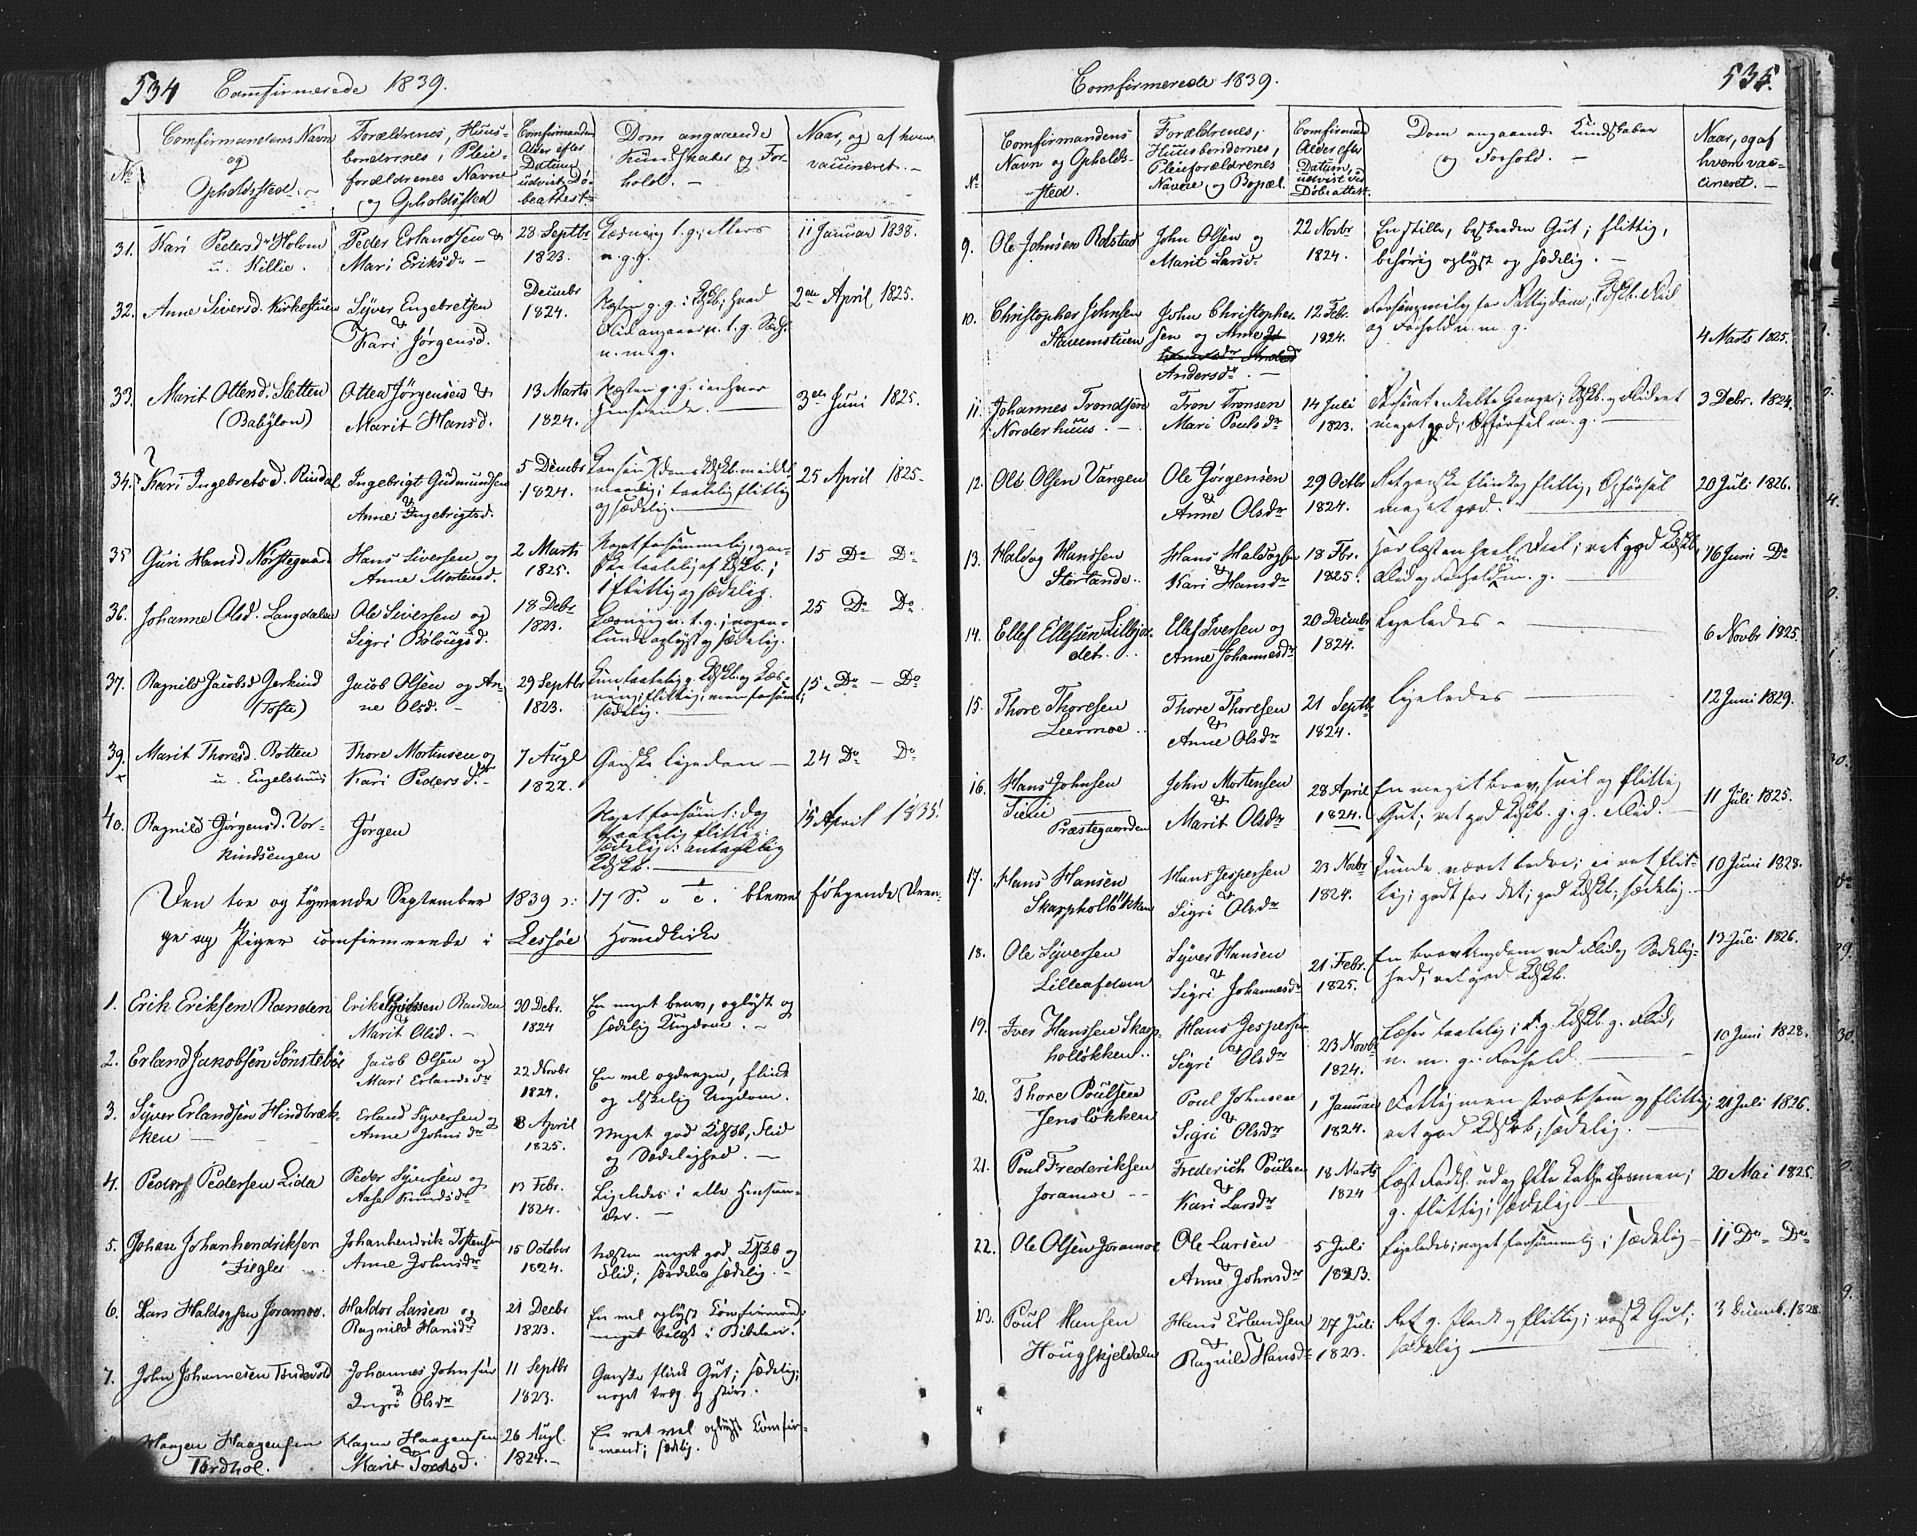 534 Comfirmerede 1839.
No
Comfirmandens Navn
og
Opholdssted. -
Forældrenes, Huus-
bondernes, Pleie-
forældrenes Navne
og Opholdssted
Comfirmanden
Alder efter
Datum
udvist Dø-
beattest
Dom angaaende
Kundskaber og For-
hold. -
Naar, og af hvem
vaccineret. -
31. Kari Pedersdr Holom
u. Killie.
Peder Erlandsen &
Mari Eriksdr -
28 Septbr
1823.
11 Januar 1838.
32. Anne Siversd. Kirkestuen
Syver Engebretsen
&
Kari Jørgensd.
Decembr
1824.
2den April 1825.
33. Marit Ottersd. Sletten
(Babylon)
Otter Jørgensen &
Marit Hansd.
13 Marts
1824.
Næsten g. g. i enhver
Henseende.
3die Juni 1825.
34. Kari Ingebretsd. Rindal
Ingebrigt Gudmundsen
&
Anne Ingebrigtsd.
5 Decmbr
1824.
og sædelig.
25 April 1825
35 Guri Hansd Nørstegaard
Hans Siversen og
Anne Mortensd.
2 Marts
1825.
Noget forsømmelig,
flittig og sædelig.
15 Do Do
36. Johanne Olsd. Langdalen
Ole Siversen og
Sigri Bølougsd.
18 Debr
1823.
25 Do Do
37. Ragnild Jacobsd Gerkind
(Tofte)
Jacob Olsen og An-
ne Olsd. -
29 Septbr
1823.
sædelig.
15 Do - Do
39. Marit Thoresd. Botten
u. Engelshuus
Thore Mortensen og
Kari Pedersdr
7 Augl
1822.
Ganske ligedan -
24 Do Do
40. Ragnild Jørgensd. Vor-
kindsengen
Jørgen
Noget forsømt: dog
taalelig flittig:
sædelig: antagelig
Kdskb.
15 April 1835.
Den toe og tyvende September 1839 o: 17 S. e. blevne følgende Dren-
ge og Piger comfirmerede i Lessøe Hovedkirke
1. Erik Eriksen Randen
Erik Syversen Randen
&
Marit Olsd. -
30 Debr.
1824
En meget brav, oplyst og
sædelig Ungdom. -
2. Erland Jakobsen Sønstebøe
Jacob Olsen og
Mari Erlandsdr
22 Novbr
1824.
En vel opdragen, flink
og elskelig Ungdom.
3. Syver Erlandsen Hindbræk-
ken
Erland Syversen og
Anne Johnsdr
8 April
1825.
Meget god Kdskb, Flid
og Sædelighed. -
4. Peder Pedersen Lida
Peder Syversen og
Aase Knudsdr
13 Febr.
1824.
Ligeledes i alle Henseen-
der. -
5. Johan Johanhendriksen
Ziegler
Johanhendrik Tostensen
Anne Johnsdr
15 October
1824.
Næsten meget god Kdskb og
Flid; særdeles sædelig. -
6. Lars Haldogsen Joramoe.
Haldor Larsen og
Ragnild Hansdr
21 Decbr
1823.
En vel oplyst Comfirmand;
meget belæst i Bibelen.
7. John Johannesen Tøndevold
Johannes Johnsen
&
Ingri Olsdr
11 Septbr
1823.
Ganske flink Gut; sædelig;
noget træg og stiv.
Haagen Haagensen
Tordhol.
Hagen Haagensen
Marit Tordsd.
26 Augl.
1824.
En ret vel oplyst Comfir-
mand; sædelig.
Comfirmerede 1839. 535.
No
Comfirmandens
Navn og Opholds-
sted.
Forældrenes,
Huusbondernes,
Pleieforældrenes
Navne og Bopæl.
Comfirmand
Alder efter
Datum,
udvist ved
Døbeattest.
Dom angaaende Kundskaber
og Forhold. -
Naar, og af
hvem vac-
cineret. -
9. Ole Johnsen Rolstad
John Olsen og
Marit Larsd.
22 Novbr
1824.
En stille, beskeden Gut; flittig,
behørig oplyst og sædelig. -
10. Christopher Johnsen
Stueemstuen
John Christopher-
sen og Anne
Andersdr. -
12 Feb.
1824.
Forsømmelig for Fattigdom;
og Forhold n. m. g.
4 Marts 1825.
11. Johannes Trondsen
Norderhuus. -
Tron Tronsen
Mari Poulsdr
14 Juli
1823.
Forsømt enkelte Gange; Kdskb. og Flid ret
meget god; Opførsel m. g.
3 Debr. 1824.
12. Ole Olsen Vangen
Ole Jørgensen
&
Anne Olsdr
29 Octbr
1824.
Ret ganske flink og flittig, Opførsel
meget god.
20 Juli 1826.
13. Haldog Hanssen
Storlande.
Hans Haldogsen
&
Kari Hansdr
18 Fbr.
1825.
Flid og Forhold m. g.
16 Juni Do
14. Ellef Ellefsen Lillejor-
det.
Ellef Iversen og
Anne Johannesdr
20 Decmbr
1824.
Ligeledes -
6 Novbr 1825.
15. Thore Thoresen
Leermoe.
Thore Thoresen
&
Anne Olsdr
21 Septbr
1824.
Ligeledes
12 Juni 1829.
16. Hans Johnsen
Præstegaarden
John Mortensen
&
Marit Olsdr
28 April
1824.
En meget brav, snil og flittig
Gut; ret god Kdskb. g. g. Flid. -
11 Juli 1825.
17. Hans Hansen
Skarphollökken
Hans Jespersen
&
Sigri Olsdr
23 Novbr
1824.
Kunde været bedre; ei ret flit-
tig; godt for det; god Kdskb; sædelig.
10 Juni 1828.
18. Ole Syversen
Lilleafdem
Syver Hansen
&
Sigri Johannesdr
21 Febr.
1825.
En brav Ungdom ved Flid og Sædelig-
hed; ret god Kdskb.
13 Juli 1826.
19. Iver Hanssen Skarp-
hollökken.
Hans Jespersen
&
Sigri Olsdr
23 Novbr
1824.
Læser taalelig; g. Kdskb. g. Flid,
n. m. g. Forhold.
10 Juni 1828.
20. Thore Poulsen
Jensløkken
Poul Johnsen
&
Sigri Olsdr
1 Januar
1824.
Fattig men stræbsom og flittig;
ret god Kdskb; sædelig. -
21 Juli 1826.
21. Poul Frederiksen
Joramoe - -
Frederich Poulsen
&
Kari Larsdr
18 Marts
1824
g. flittig; sædelig
20 Mai 1825.
22. Ole Olsen Joramoe
Ole Larsen
Anne Johnsdr
5 Juli
1823.
Ligeledes; noget forsømmelig; sædelig -
11 Do Do
23. Poul Hansen
Hougskjeldalen
Hans Erlandsen
&
Ragnild Hansdr
27 Juli
1823.
Ret g. flink og flittig; rask Gut;
sædelig
3 Decmb. 1828.